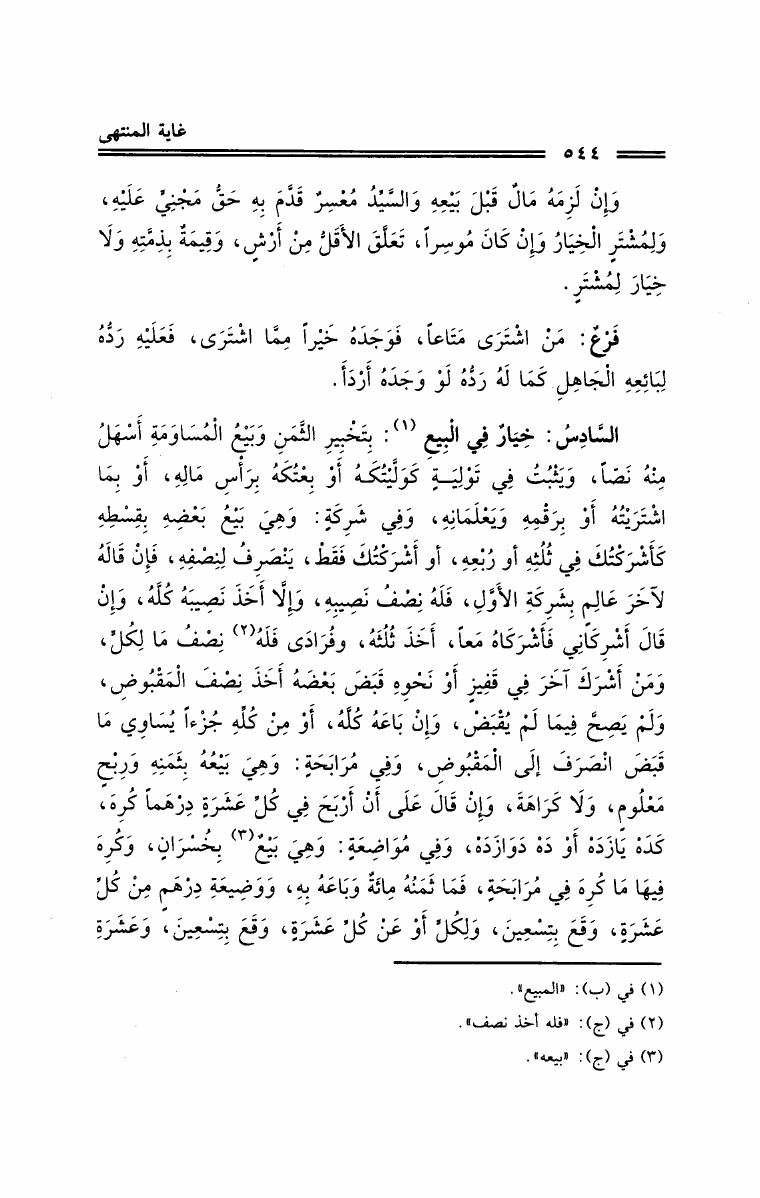 غاية المنتهى
٥٤٤
وَإِنْ لَزِمَهُ مَالٌ قَبْلَ بَيْعِهِ وَالسَّيِّدُ مُعْسِرٌ قَدَّمَ بِهِ حَقُّ مَجْنِيٍّ عَلَيْهِ،
وَلِمُشْتَرٍ الْخِيَارُ وَإِنْ كَانَ مُوسِراً، تَعَلَّقَ الأَقَلُّ مِنْ أَرْشٍ، وَقِيمَةٌ بِذِمَّتِهِ وَلَا
خِيَارَ لِمُشْتَرٍ.
فَرْعٌ: مَنْ اشْتَرَى مَتَاعاً، فَوَجَدَهُ خَيْراً مِمَّا اشْتَرَى، فَعَلَيْهِ رَدُّهُ
لِبَائِعِهِ الْجَاهِلِ كَمَا لَهُ رَدُّهُ لَوْ وَجَدَهُ أَرْدَأَ.
السَّادِسُ: خِيَارٌ فِي الْبِيعِ (١): بِتَخْبِيرِ الثَّمَنِ وَبَيْعُ الْمُسَاوَمَةِ أَسْهَلُ
مِنْهُ نَصّاً، وَيَثْبُتُ فِي تَوْلِيَـةٍ كَوَلَّيْتُكَـهُ أَوْ بِعْتُكَهُ بِرَأْسِ مَالِهِ، أَوْ بِمَا
اشْتَرَيْتُهُ أَوْ بِرَقْمِهِ وَيَعْلَمَانِهِ، وَفِي شَرِكَةٍ: وَهِيَ بَيْعُ بَعْضِهِ بِقِسْطِهِ
كَأَشْرَكْتُكَ فِي ثُلُثِهِ أو رُبْعِهِ، أو أَشْرَكْتُكَ فَقَطْ، يَنْصَرِفُ لِنِصْفِهِ، فَإِنْ قَالَهُ
لآخَرَ عَالِمٍ بِشَرِكَةِ الأَوَّلِ، فَلَهُ نِصْفُ نَصِيبِهِ، وَإِلَّا أَخَذَ نَصِيبَهُ كُلَّهُ، وَإِنْ
قَالَ أَشْرِكَانِي فَأَشْرَكَاهُ مَعاً، أَخَذَ ثُلُثَهُ، وفُرَادَى فَلَهُ(٢) نِصْفُ مَا لِكُلٍّ،
وَمَنْ أَشْرَكَ آخَرَ فِي قَفِيزٍ أَوْ نَحْوِهِ قَبَضَ بَعْضَهُ أَخَذَ نِصْفَ الْمَقْبُوضِ،
وَلَمْ يَصِحَّ فِيمَا لَمْ يُقْبَضْ، وَإِنْ بَاعَهُ كُلَّهُ، أَوْ مِنْ كُلِّهِ جُزْءاً يُسَاوِي مَا
قَبَضَ انْصَرَفَ إِلَى الْمَقْبُوضِ، وَفِي مُرَابَحَةٍ: وَهِيَ بَيْعُهُ بِثَمَنِهِ وَرِبْحٍ
مَعْلُومٍ، وَلَا كَرَاهَةَ، وَإِنْ قَالَ عَلَى أَنْ أَرْبَحَ فِي كُلِّ عَشَرَةٍ دِرْهَماً كُرِهَ،
كَدَهْ يَازِدَهْ أَوْ دَهْ دَوَازِدَهْ، وَفِي مُوَاضِعَةٍ: وَهِيَ بَيْعٌ(٣) بِخُسْرَانٍ، وَكُرِهَ
فِيهَا مَا كُرِهَ فِي مُرَابَحَةٍ، فَمَا ثَمَنُهُ مِائَةٌ وَبَاعَهُ بِهِ، وَوَضِيعَةِ دِرْهَمٍ مِنْ كُلِّ
عَشَرَةٍ، وَقَعَ بِتِسْعِينَ، وَلِكُلِّ أَوْ عَنْ كُلِّ عَشَرَةٍ، وَقَعَ بِتِسْعِينَ، وَعَشَرَةِ
(١) في (ب): «المبيع».
(٢) في (ج): «فله أخذ نصف».
(٣) في (ج): «بيعه».